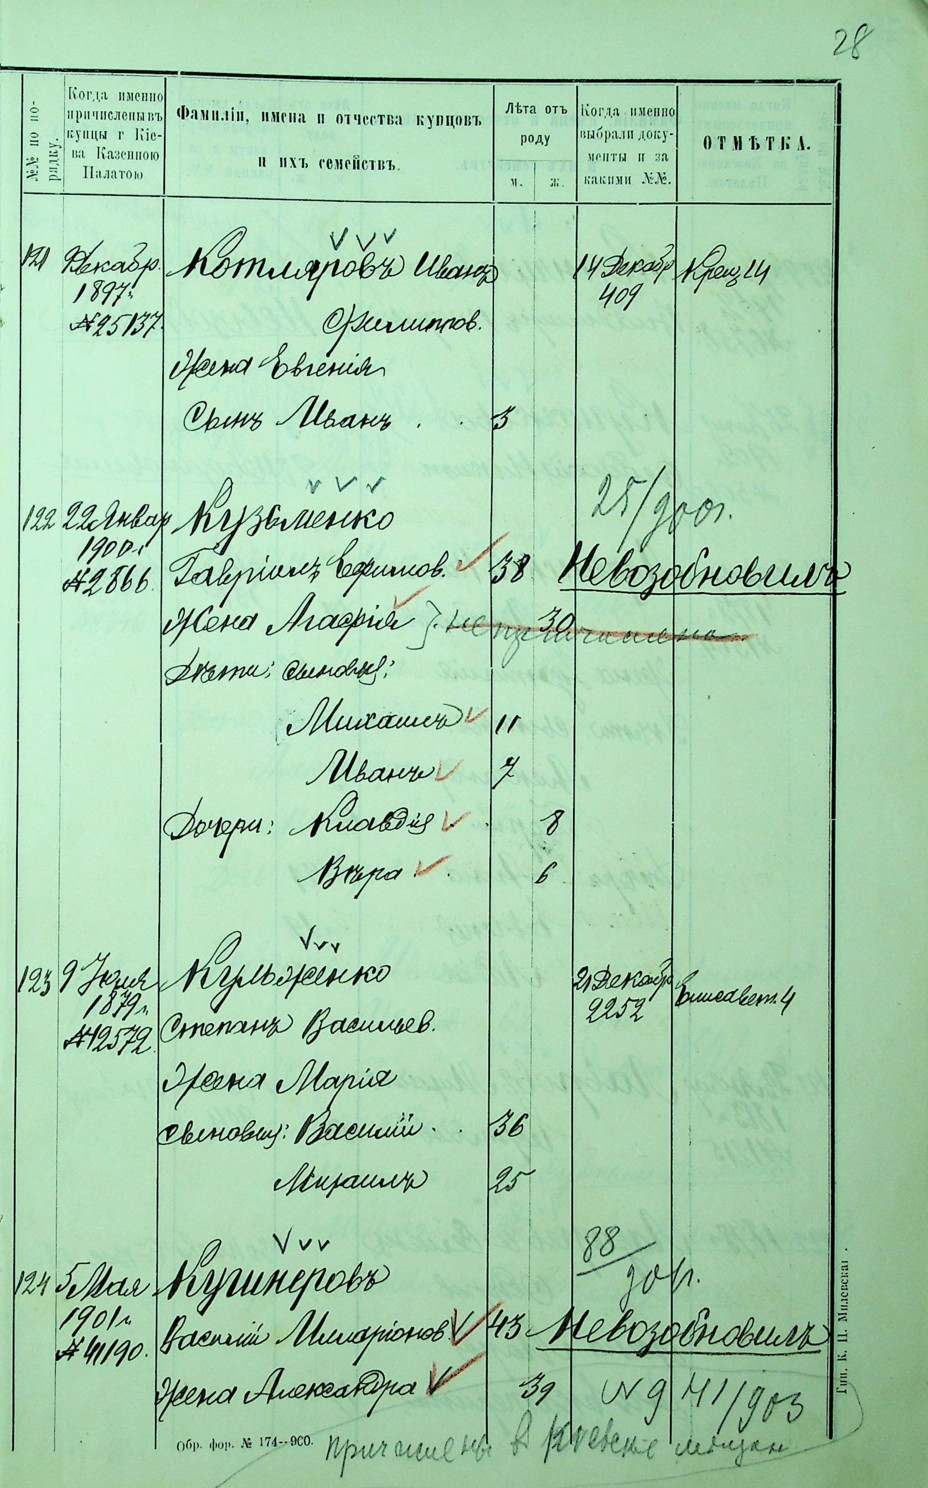 28
№№ по по-
рядку.
Когда именно
причислены въ
купцы г Кіе-
ва Казенною
Палатою
Фамиліи, имена и отчества купцовъ
и ихъ семействъ.
Лѣта отъ
роду
м.
ж.
Когда именно
выбрали доку-
менты и за
какими №№.
ОТМѢТКА.
121 Декабр. Котляровъ Иванъ 14 Декабр Крещ 14
1897г. 409
№25137. Филиппов.
Жена Евгенія
Сынъ Иванъ . . 3
25/900г.
122 22 Январ Кузьменко
1900г
№2866. Гавріилъ Ефимов. 38 Невозобновилъ
Жена Агафія 30
Дѣти: сыновья:
Михаилъ 11
Иванъ 7
Дочери: Клавдія 8
Вѣра 6
123 9 Іюля Кульженко 21 Декабр Елисавет. 4
1879г. 2252
№12572. Степанъ Васильев.
Жена Марія
сыновья: Василій . . 36
Михаилъ 25
88/901г.
124 5 Мая Кушнеровъ
1901г.
№41190. Василій Иларіонов. 43 Невозобновилъ
Жена Александра 39 №9 41/903
причислены в Киевские мещан
Обр. фор. № 174—900.
Тип. К. Н. Милевскаг.